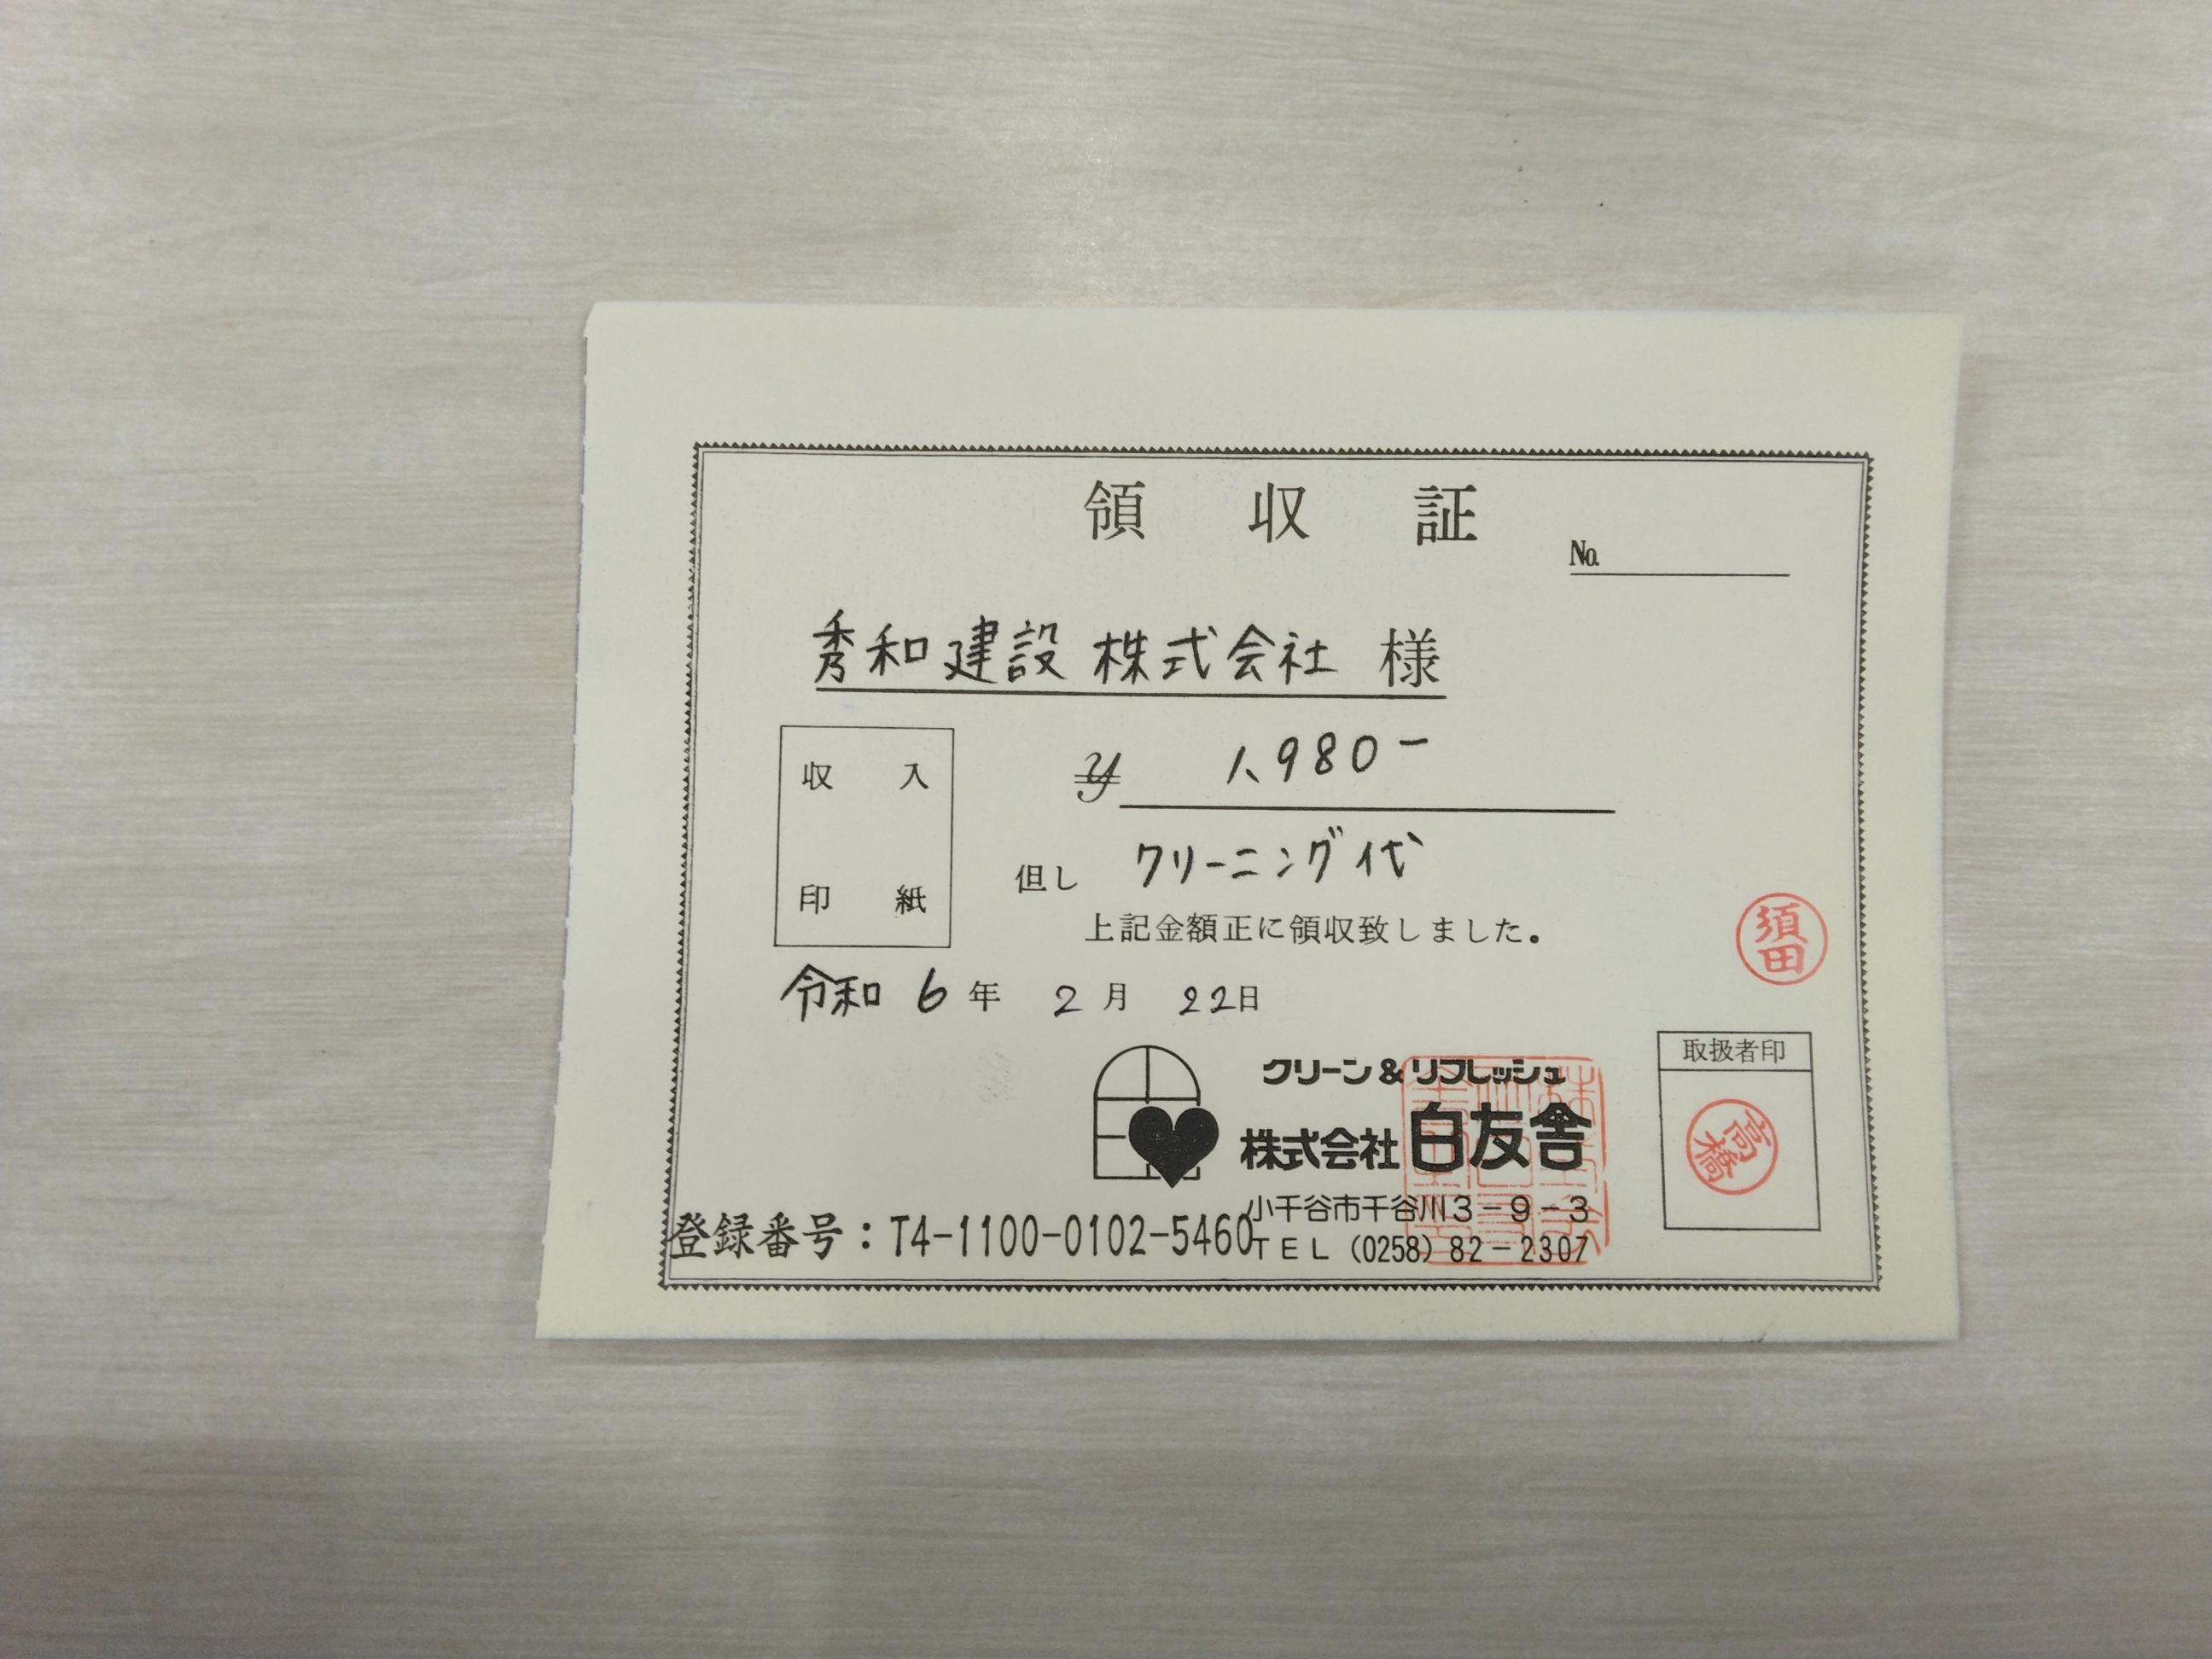 領収証
No.
秀和建設 株式会社 様
収入
印紙
¥ 1,980-
但し クリーニング代
上記金額正に領収致しました。
須田
令和 6 年 2 月 22日
クリーン&リフレッシュ
株式会社 白友舎
小千谷市千谷川3-9-3
TEL (0258) 82-2307
登録番号:T4-1100-0102-5460
取扱者印
高橋